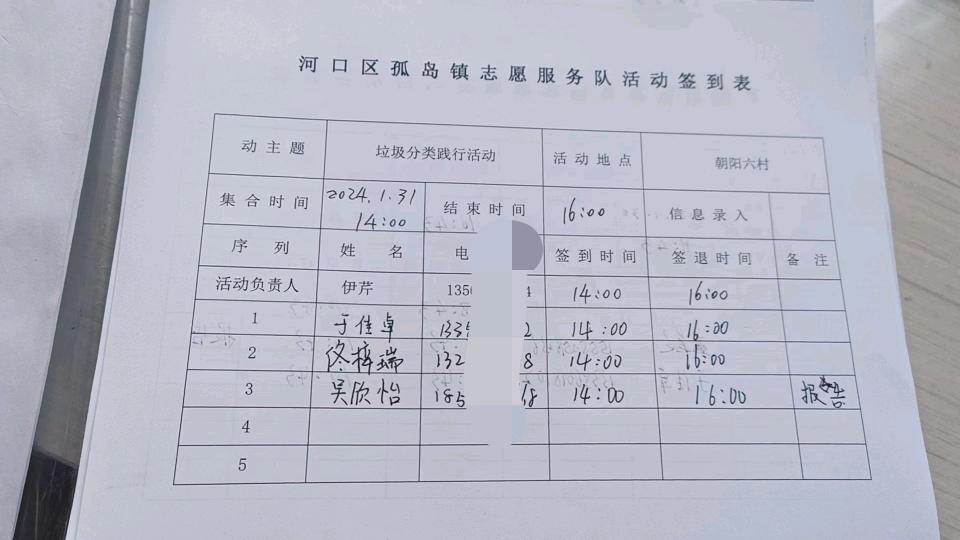 河口区孤岛镇志愿服务队活动签到表
动主题 垃圾分类践行活动 活动地点 朝阳六村
集合时间 2024.1.31 14:00 结束时间 16:00 信息录入
序列 姓名 电 签到时间 签退时间 备注
活动负责人 伊芹 135 4 14:00 16:00
1 于佳卓 1335 2 14:00 16:00
2 佟梓瑞 132 8 14:00 16:00
3 吴欣怡 185 8 14:00 16:00 报告
4
5